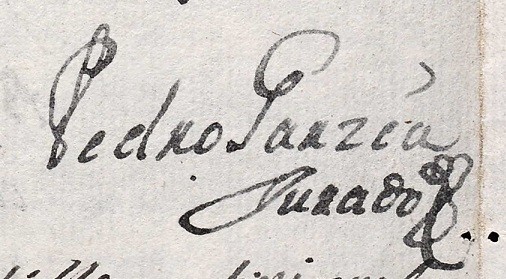 Pedro Garzía
Jurado